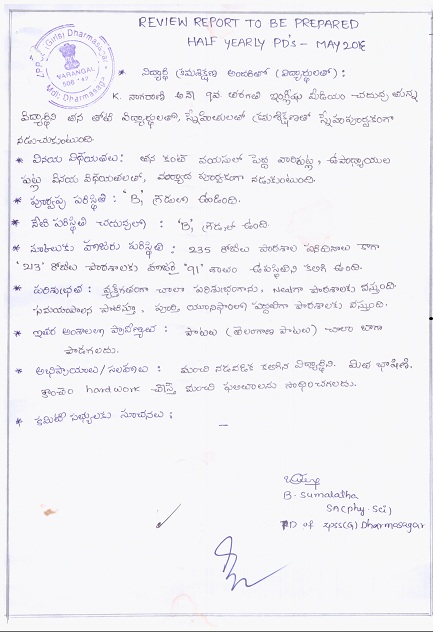 REVIEW REPORT TO BE PREPARED
HALF YEARLY PD's - MAY 2018
Z.P.S.S. (Girls) Dharmasagar
WARANGAL
506 142
Mdl: Dharmasagar
* విద్యార్థి క్రమశిక్షణ అందరితో (విద్యార్థులతో) :
K. నాగరాణి అనే 9వ తరగతి ఇంగ్లీషు మీడియం చదువు తున్న
విద్యార్థిని తన తోటి విద్యార్థులతో, స్నేహితులతో క్రమశిక్షణతో స్నేహపూర్వకంగా
నడుచుకుంటుంది.
* వినయ విధేయతలు : తన కంటే వయసులో పెద్ద వారిపట్ల, ఉపాధ్యాయుల
పట్ల వినయ విధేయతలతో, మర్యాద పూర్వకంగా నడుకుంటుంది.
* పూర్వపు పరిస్థితి : 'B' గ్రేడులో ఉండింది.
* నేటి పరిస్థితి చదువులో : 'B' గ్రేడులో ఉంది.
* హాజరు పరిస్థితి : 235 రోజులు పాఠశాల పనిదినాలు కాగా
'213' రోజులు పాఠశాలకు హాజరై '91' శాతం ఉపస్థితి కలిగి ఉంది.
* పరిశుభ్రత : వ్యక్తిగతంగా చాలా పరిశుభ్రంగాను, Neatగా పాఠశాలకు వస్తుంది.
సమయపాలన పాటిస్తూ, పూర్తి యూనిఫాంలో పాఠశాలకు వస్తుంది.
* ఇతర అంశాలలో ప్రావీణ్యత : పాటలు (తెలంగాణ పాటలు) చాలా బాగా
పాడగలదు.
* అభిప్రాయాలు/సలహాలు : మంచి నడవడిక కలిగిన విద్యార్థిని. మిత భాషిణి.
కొంచెం hardwork చేస్తే మంచి ఫలితాలను సాధించగలదు.
* కమిటీ సభ్యులకు సూచనలు :
B. Sumalatha
SA(phy.sci)
PD of zpss(G) Dharmasagar